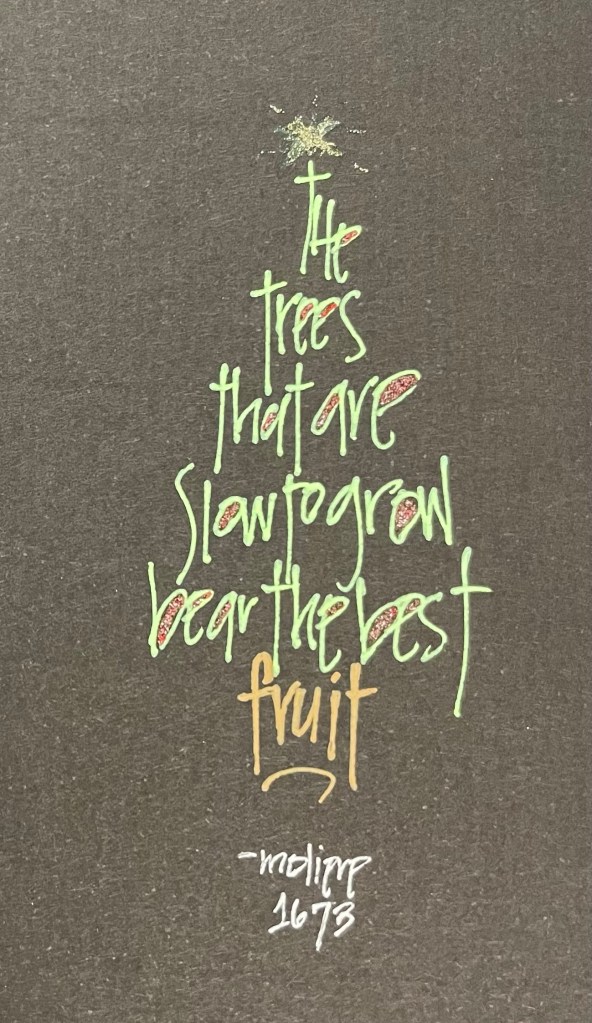 the
trees
that are
slow to grow
bear the best
fruit
-moliere
1673